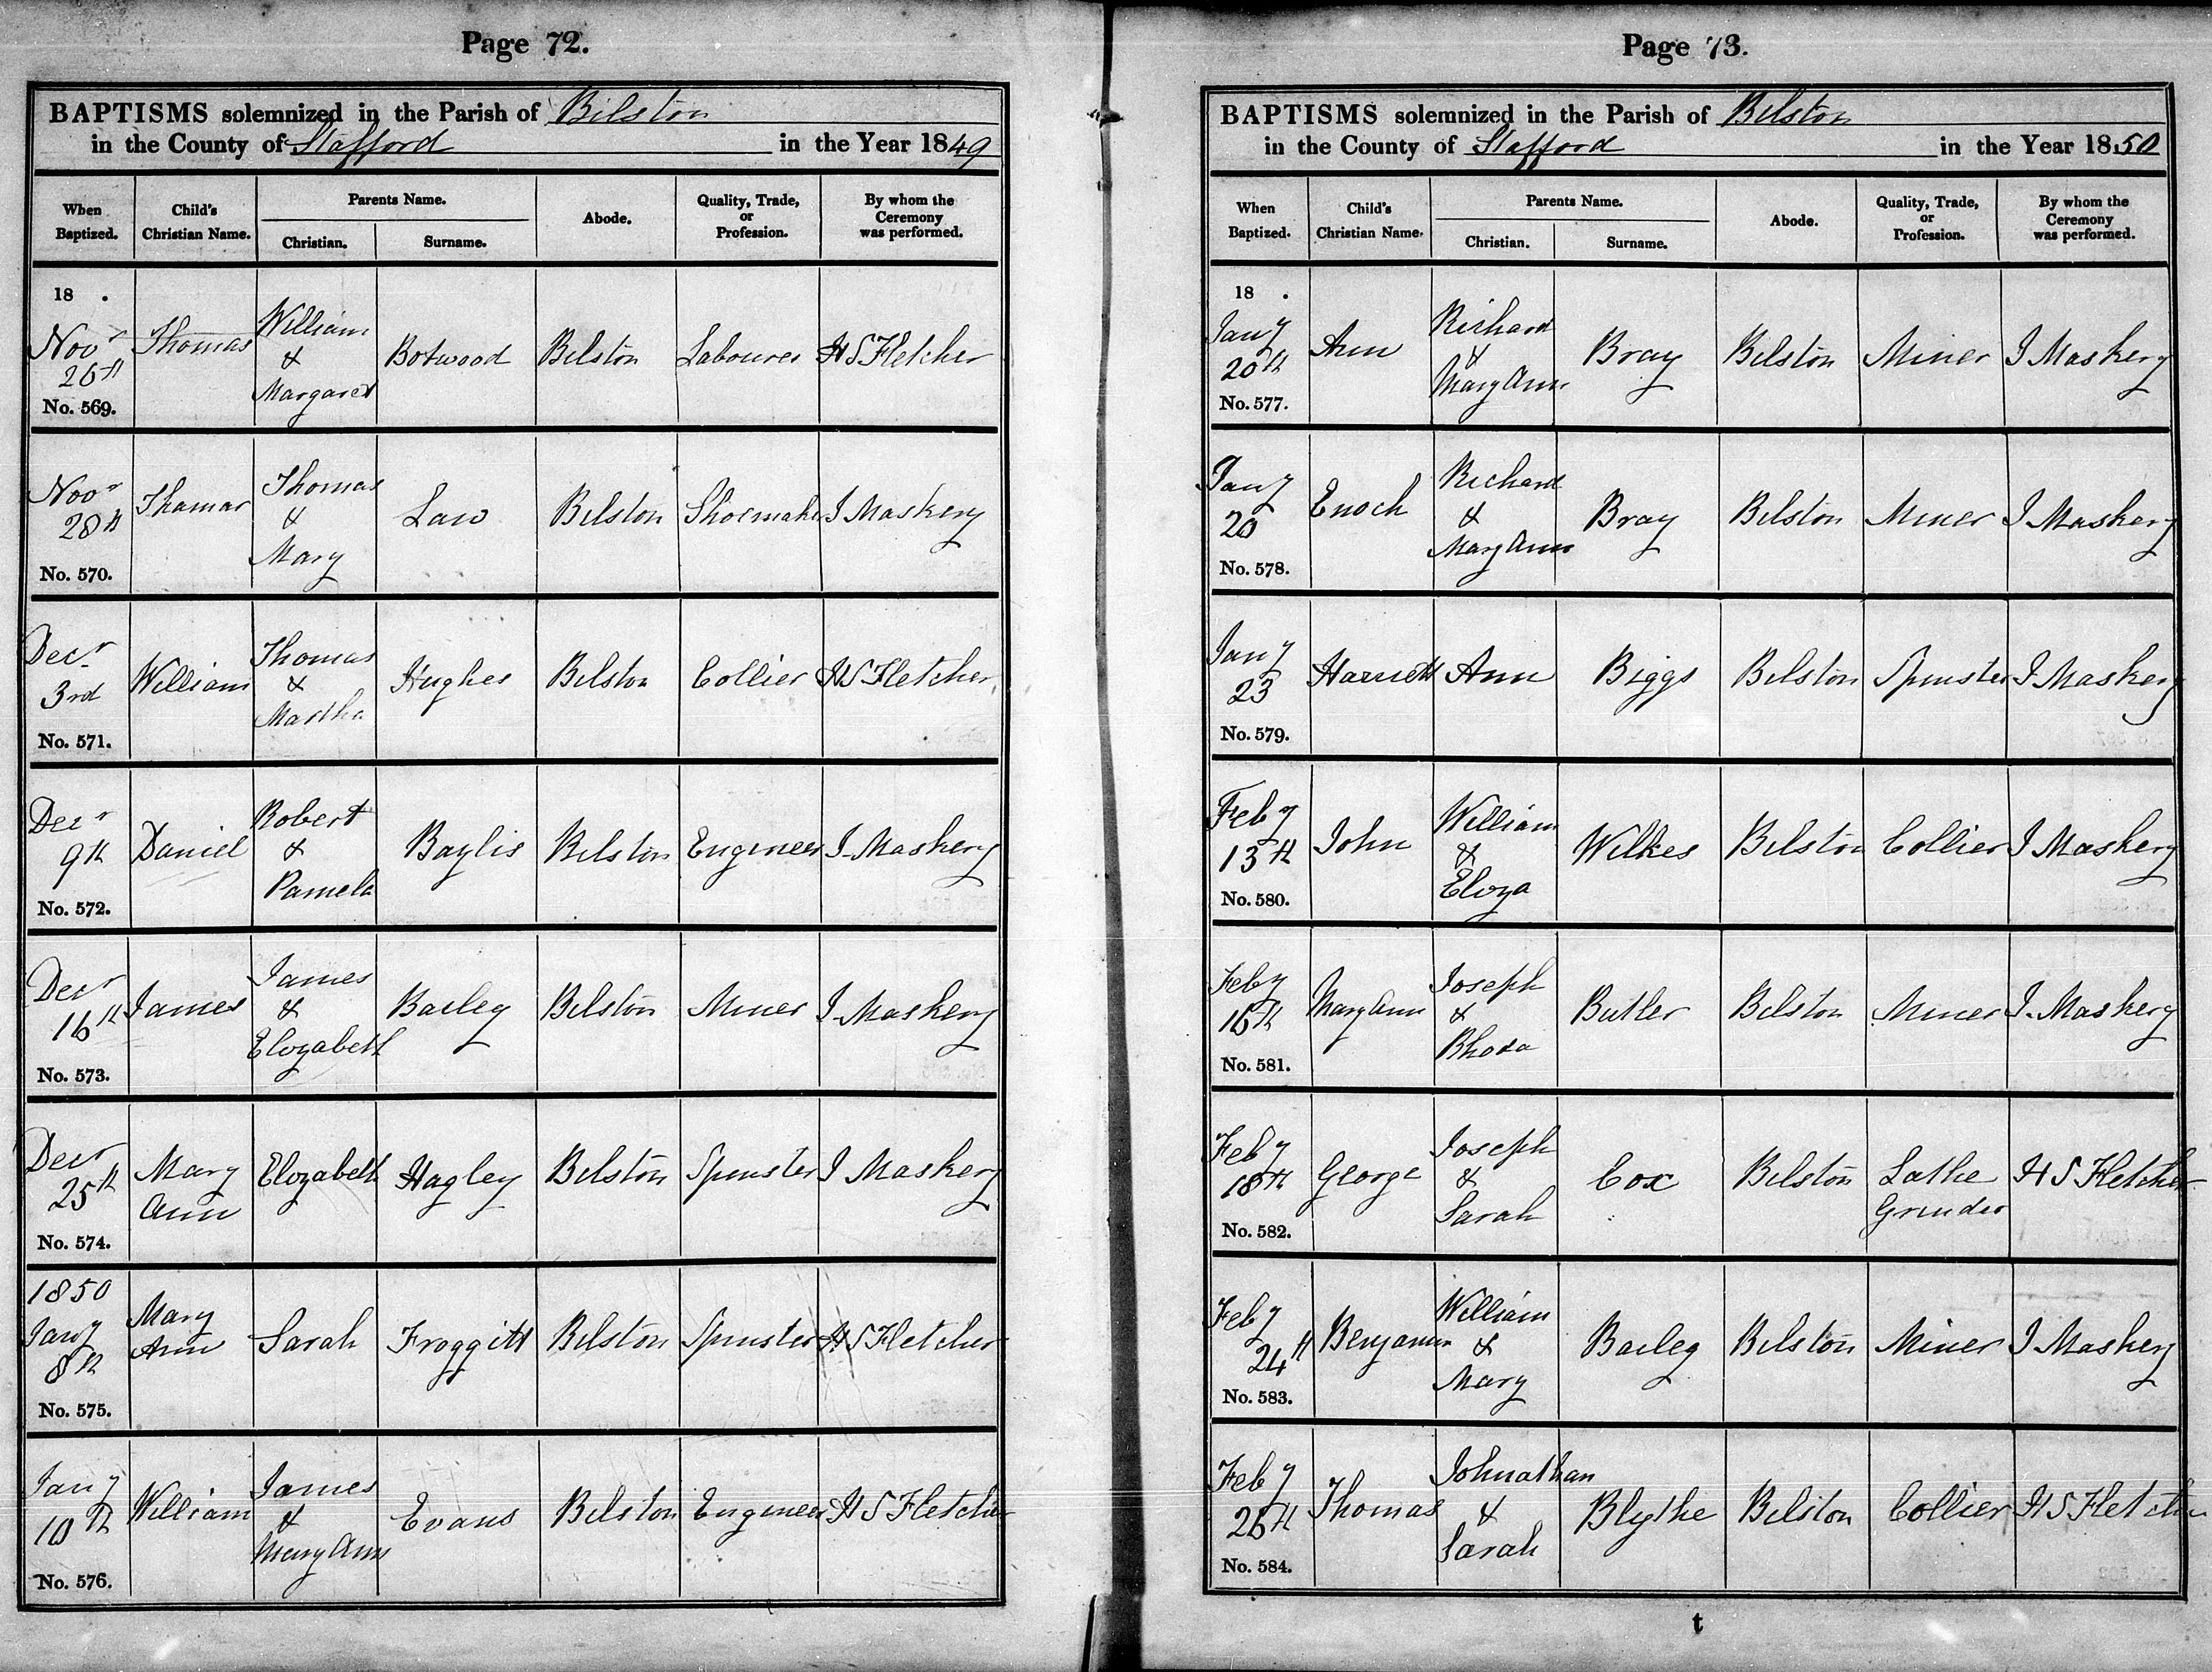 Page 72.
BAPTISMS solemnized in the Parish of Bilston
in the County of Stafford in the Year 1849
When Baptized. Child's Christian Name. Parents Name. Christian. Surname. Abode. Quality, Trade, or Profession. By whom the Ceremony was performed.
18 .
Novr 26th Thomas William & Margaret Botwood Bilston Labourer H S Fletcher
No. 569.
Novr 28th Thamar Thomas & Mary Law Bilston Shoemaker I Maskery
No. 570.
Decr 3rd William Thomas & Martha Hughes Bilston Collier H S Fletcher
No. 571.
Decr 9th Daniel Robert & Pamela Baylis Bilston Engineer I Maskery
No. 572.
Decr 16th James James & Elizabeth Bailey Bilston Miner I Maskery
No. 573.
Decr 25th Mary Ann Elizabeth Hagley Bilston Spinster I Maskery
No. 574.
1850
Jany 8th Mary Ann Sarah Froggitt Bilston Spinster H S Fletcher
No. 575.
Jany 10th William James & Mary Ann Evans Bilston Engineer H S Fletcher
No. 576.
Page 73.
BAPTISMS solemnized in the Parish of Bilston
in the County of Stafford in the Year 1850
When Baptized. Child's Christian Name. Parents Name. Christian. Surname. Abode. Quality, Trade, or Profession. By whom the Ceremony was performed.
18 .
Jany 20th Ann Richard & Mary Ann Bray Bilston Miner I Maskery
No. 577.
Jany 20 Enoch Richard & Mary Ann Bray Bilston Miner I Maskery
No. 578.
Jany 23 Harriett Ann Biggs Bilston Spinster I Maskery
No. 579.
Feby 13th John William & Eliza Wilkes Bilston Collier I Maskery
No. 580.
Feby 16th Mary Ann Joseph & Rhoda Butler Bilston Miner I Maskery
No. 581.
Feby 18th George Joseph & Sarah Cox Bilston Lathe Grinder H S Fletcher
No. 582.
Feby 24th Benjamin William & Mary Bailey Bilston Miner I Maskery
No. 583.
Feby 26th Thomas Johnathan & Sarah Blythe Bilston Collier H S Fletcher
No. 584.
t